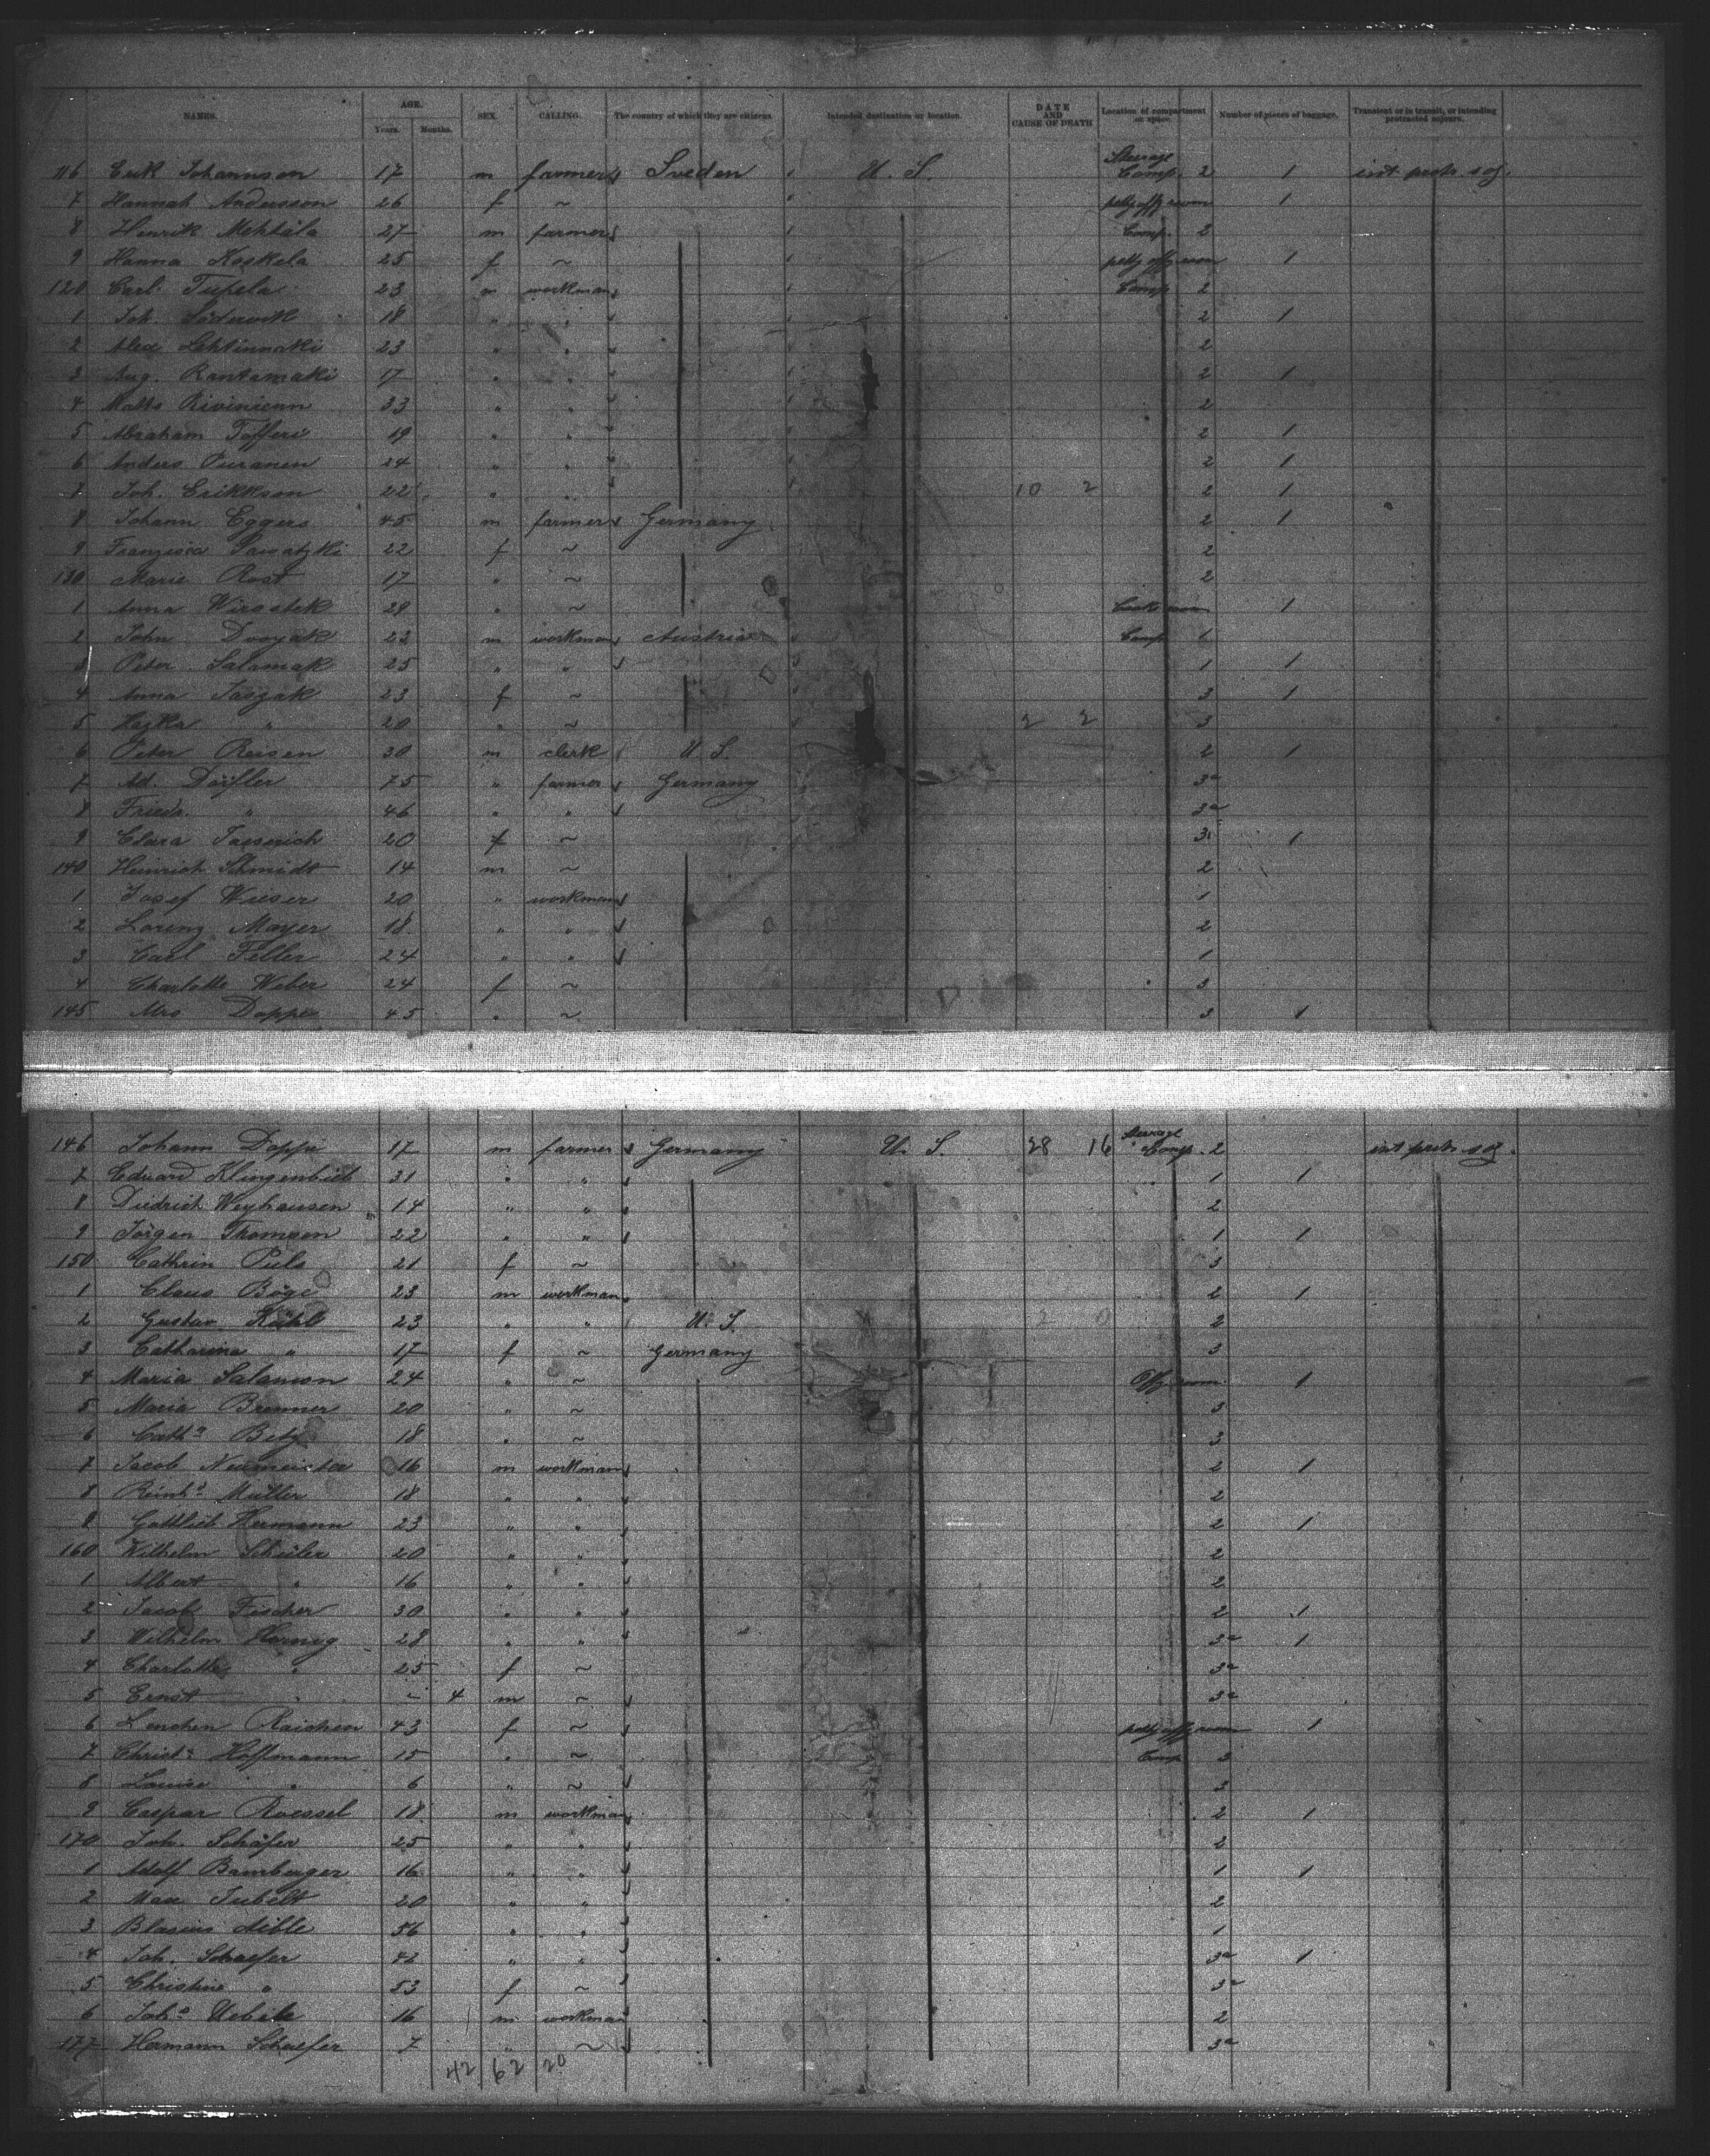 NAMES. AGE. SEX. CALLING. The country of which they are citizens. Intended destination or location. DATE AND CAUSE OF DEATH Location of compartment or space. Number of pieces of baggage. Transient or in transit, or intending protracted sojourn.
Years. Months.
116 Erik Johannson 17 m farmer Sweden U. S. Steerage Comp. 2 1 int. protr. soj.
7 Hannah Andersson 26 f ~ petty off room 1
8 Henrik Mehtäla 27 m farmer Comp. 2
9 Hanna Koskela 25 f ~ petty off room 1
120 Carl Tupela 23 m workman Comp 2
1 Joh. Södervik 18 " " 2 1
2 Alex Lehtinmaki 23 " " 2
3 Aug. Rantamaki 17 " " 2 1
4 Matts 33 " " 2
5 Abraham Tofferi 19 " " 2 1
6 Anders Puranen 24 " " 2 1
7 Joh. Erikkson 22 " " 10 2 2 1
8 Johann Eggers 45 m farmer Germany 2 1
9 Franzisca 22 f ~ 2
130 Marie Rost 17 " ~ 2
1 Anna 28 " ~ room 1
2 John Dvoyak 22 m workman Austria Comp 1
3 Peter Salamak 25 " " 1 1
4 Anna Jaszak 23 f ~ 3 1
5 " 20 " ~ 2 2 3
6 Peter Reisen 30 m clerk U. S. 2 1
7 Ad. Dörfler 75 " farmer Germany 3a
8 Friedr. " 46 " " 3a
9 Clara 20 f ~ 3 1
140 Heinrich Schmidt 14 m ~ 2
1 Josef Wieser 20 " workman 1
2 Lorenz Mayer 18 " " 2
3 Carl Feller 24 " " 1
4 Charlotte Weber 24 f ~ 3
145 Mrs Doppe 45 " ~ 3 1
146 Johann Doppe 17 m farmer Germany U. S. 28 16 Steerage Comp. 2 int protr. soj.
7 Eduard Klingenbiel 31 " " 1 1
8 Diedrich Weyhausen 14 " " 2
9 Jörgen Thomsen 22 " " 1 1
150 Cathrin Puls 21 f ~ 3
1 Claus Böge 23 m workman 2 1
2 Gustav Kähl 23 " " U. S. 2 0 2
3 Catharina " 17 f ~ Germany 3
4 Maria Salamon 24 " ~ Off. room 1
5 Maria Brenner 20 " ~ 3
6 Cath.a Betz 18 " ~ 3
7 Jacob Neumeister 16 m workman 2 1
8 Reinh.d Müller 18 " " 2
9 Gottlieb Hermann 23 " " 2 1
160 Wilhelm Schüler 20 " " 2
1 Albert " 16 " " 2
2 Jacob Fischer 30 " " 2 1
3 Wilhelm Hornig 28 " " 3a 1
4 Charlotte " 25 f ~ 3a
5 Ernst " ~ 4 m ~ 3a
6 Lenchen Raichen 43 f ~ petty off room 1
7 Christ.a Hoffmann 15 " ~ Comp 3
8 Louise " 6 " ~ 3
9 Caspar Roessel 18 m workman 2 1
170 Joh. Schäfer 25 " " 2
1 Adolf Bamberger 16 " " 1 1
2 Max Jubelt 20 " " 2
3 Blasius Aible 56 " " 1
4 Joh. Schaefer 42 " " 3a 1
5 Christine " 53 f ~ 3a
6 16 m workman 2
177 Hermann Schaefer 7 " ~ 3a
42 62 20